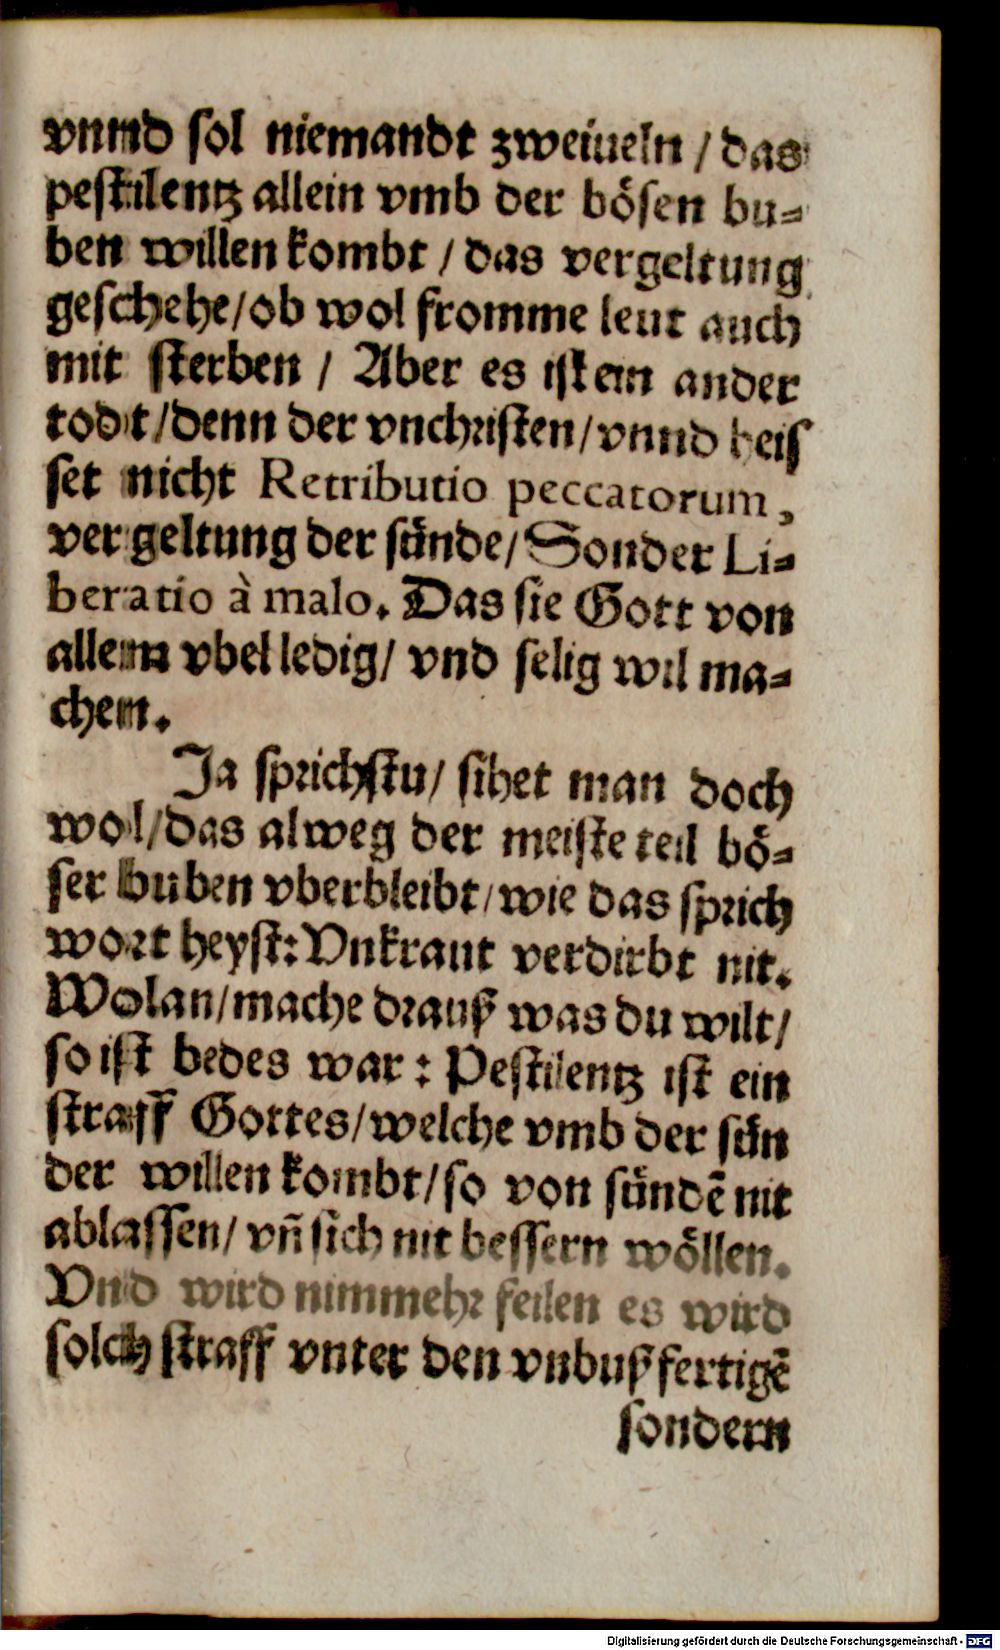 vnnd sol niemandt zweiueln / das
pestilentz allein vmb der bösen bu-
ben willen kombt / das vergeltung
geschehe/ ob wol fromme leut auch
mit sterben / Aber es ist ein ander
todt /denn der vnchristen/ vnnd heis
set nicht Retributio peccatorum,
vergeltung der sünde/ Sonder Li-
beratio à malo. Das sie Gott von
allem vbel ledig/ vnd selig wil ma-
chen.
Ja sprichstu/ sihet man doch
wol/das alweg der meiste teil bö-
ser buben vberbleibt/ wie das sprich
wort heyst: Vnkraut verdirbt nit.
Wolan/mache drauß was du wilt/
so ist bedes war: Pestilentz ist ein
straff Gottes/welche vmb der sün
der willen kombt/ so von sündē nit
ablassen/ vñ sich nit bessern wöllen.
Vnd wird nimmehr feilen es wird
solch straff vnter den vnbußfertigē
sondern
Digitalisierung gefördert durch die Deutsche Forschungsgemeinschaft - DFG